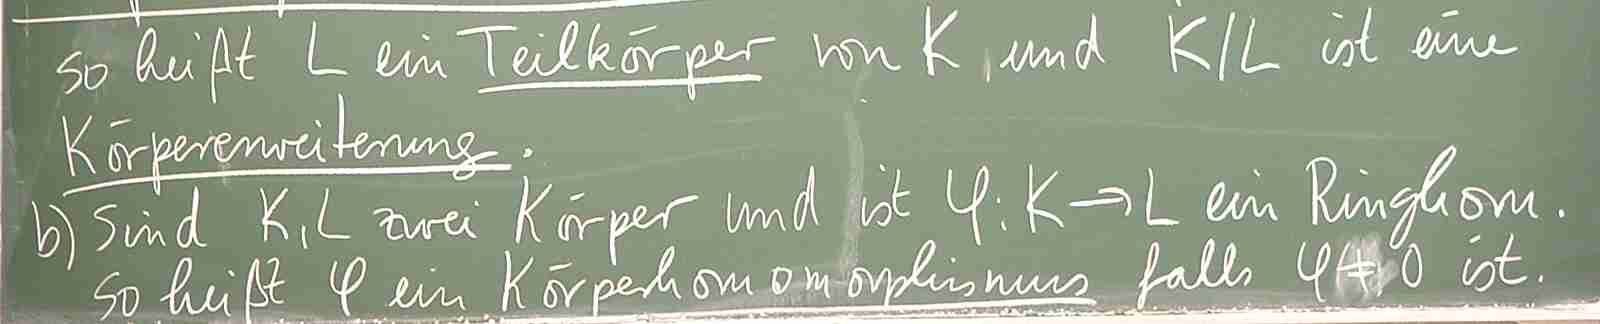 so heißt L ein Teilkörper von K, und K/L ist eine
Körpererweiterung.
b) Sind K, L zwei Körper und ist φ: K → L ein Ringhom.
so heißt φ ein Körperhomomorphismus falls φ ≠ 0 ist.